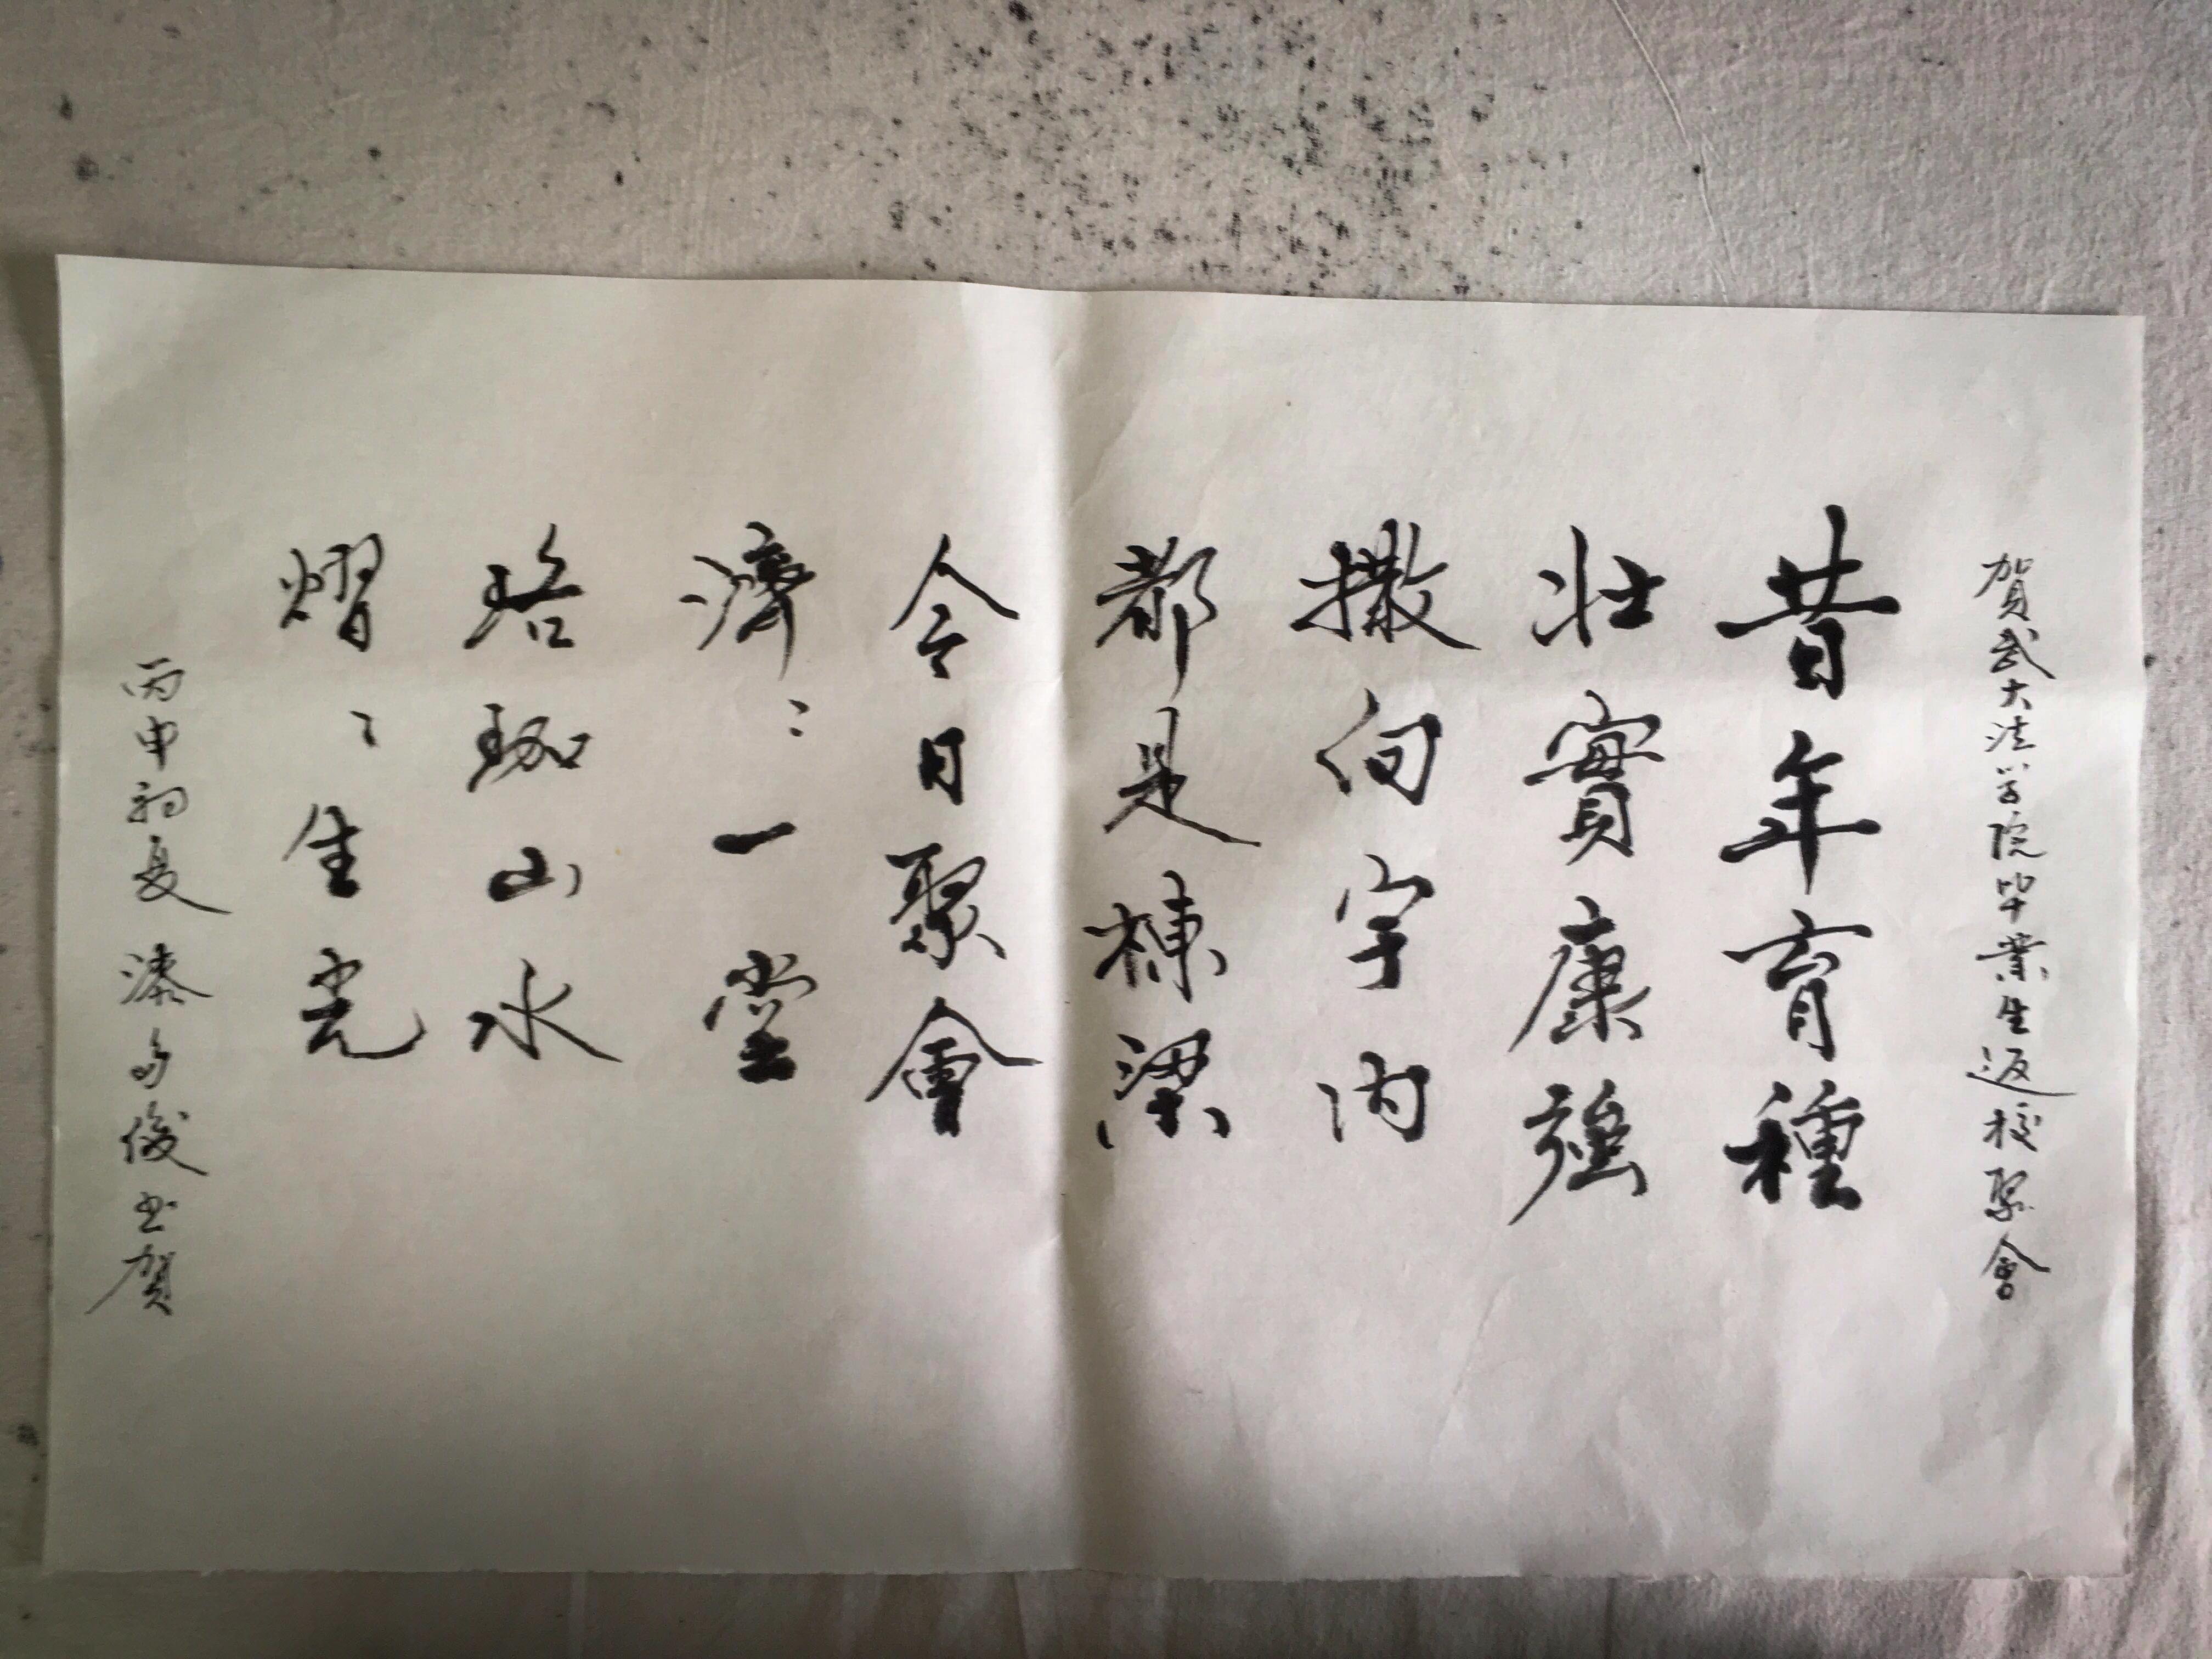 賀武大法学院毕業生返校聚會
昔年育種
壯實康強
撒向宇内
都是棟梁
今日聚會
濟〻一堂
珞珈山水
熠〻生光
丙申初夏 漆多俊书賀